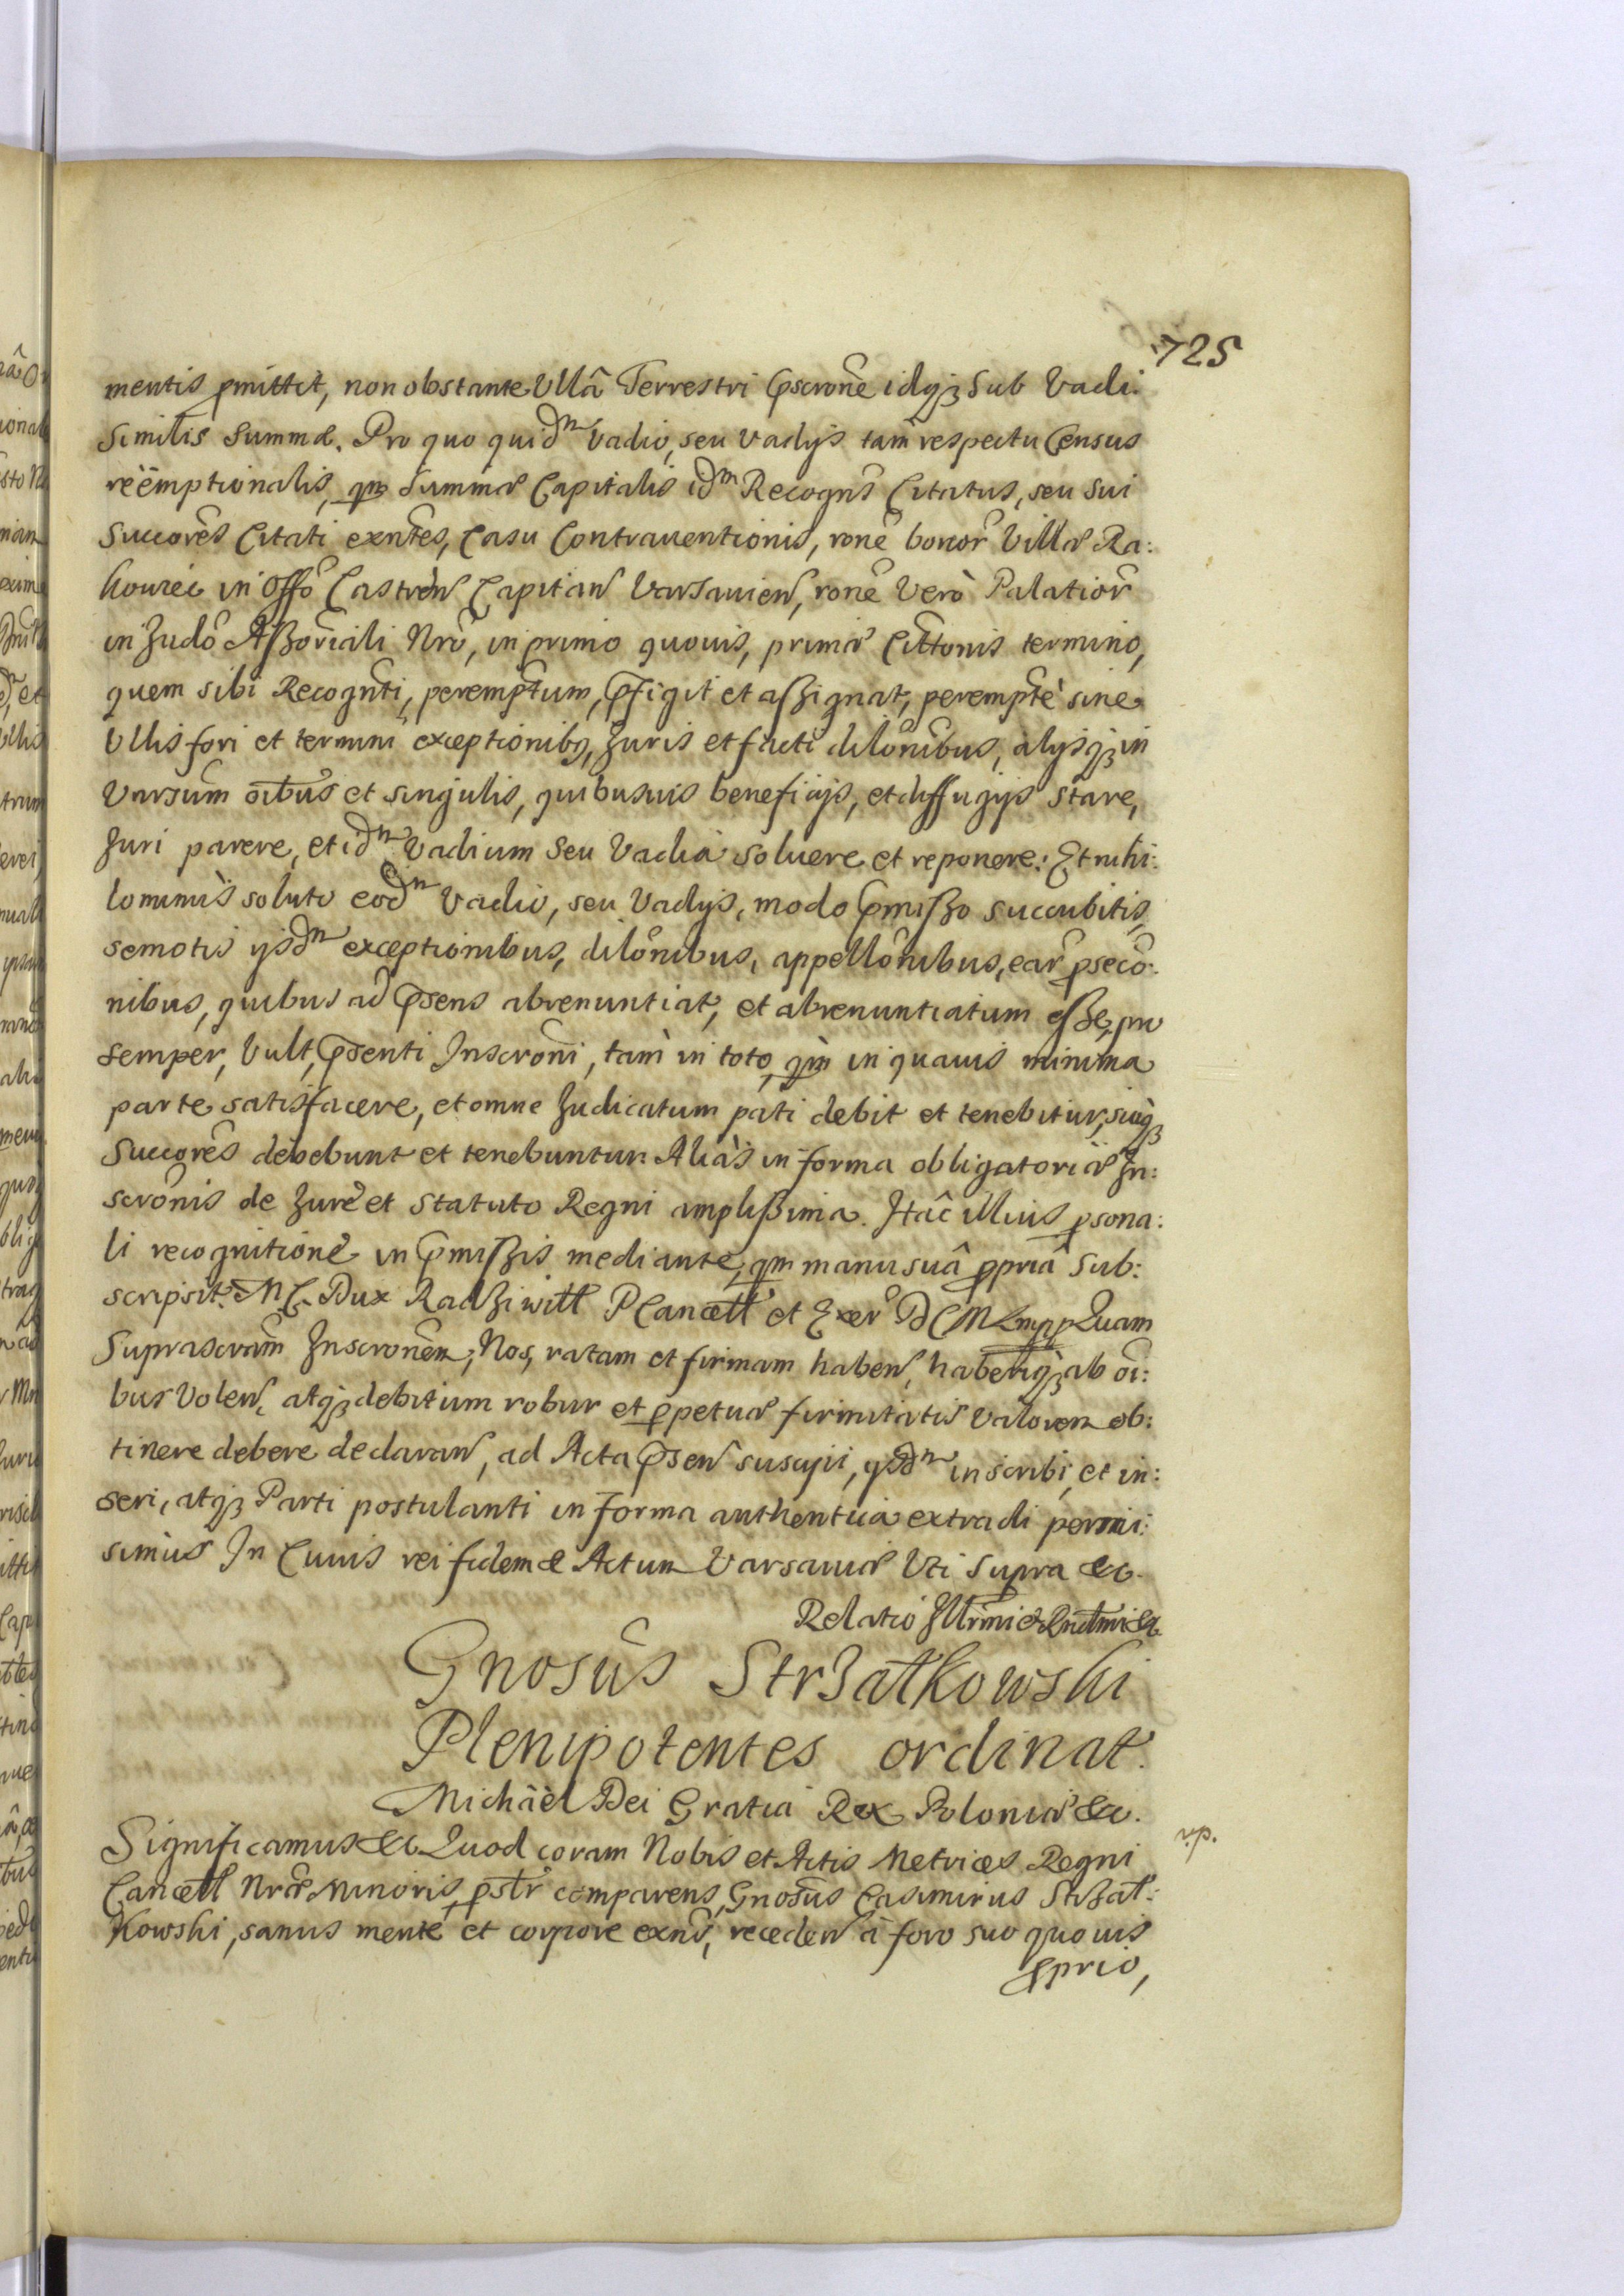 725
mentis pmittit, non obstante Vllâ Terrestri Pscrone idq3 sub Vadi:
similis summæ. Pro quo quidm Vadio, seu vadijs tam respectu Census
reemptionalis, qm summæ Capitalis idm Recogns Citatus, seu sui
Succores Citati exntes, Casu Contrauentionis, rone bonor Villæ Ra:
kowiec in Offo Castren Capitan Varsauien, rone Verò Palatior
in Judo Aßoriali Nro, in primo quouis, primæ Cittonis termino,
quem sibi Recognti, peremptum, pfigit et aßignat, perempte sine
Vllis fori et termini exceptionibq, Juris et facti dilonibus, alijsq3 in
Varsum oibus et singulis, quibusuis beneficijs, et diffugijs stare,
Juri parere, et idm Vadium seu Vadia soluere et reponere: Et nihi:
lominus soluto eodm Vadio, seu Vadijs, modo pmißo succubitis,
semotis ijsdm exceptionibus, dilonibus, appellonibus, ear pseco:
nibus, quibus ad psens abrenuntiat, et abrenuntiatum eße, pro
semper, Vult, psenti Inscroni, tam in toto, qm in quauis minima
parte satisfacere, et omne Judicatum pati debit et tenebitur, suiq3
Succores debebunt et tenebuntur. Aliàs in forma obligatoriæ In:
scronis de Jure et Statuto Regni amplißima. Hâc illius psona:
li recognitione in pmißis mediante, qm manu suâ ppria Sub:
scripsit. M C Dux Radziwill PCancell et Exer D C M L mpp Quam
Suprascram Inscronem, Nos, ratam et firmam haben, haberiq3 ab oi:
bus Volen, atq3 debitum robur et ppetuæ firmitatis Valorem ob:
tinere debere declaran, ad Acta psen suscipi, ijsdm inscribi, et in:
seri, atq3 Parti postulanti in forma authentica extradi permi:
simus In Cuius rei fidem & Actum Varsauiæ Vti supra &c.
Relatio Illrmi & Rndmi &c.
Gnosus Strzałkowski
Plenipotentes ordinat.
Michäel Dei Gratia Rex Poloniæ &c.
Significamus &c Quod coram Nobis et Actis Metrices Regni
Cancell Nræ Minoris, pstr comparens, Gnosus Casimirus Strzał:
Kowski, sanus mente et corpore exns, receden à foro suo quouis
pprio,